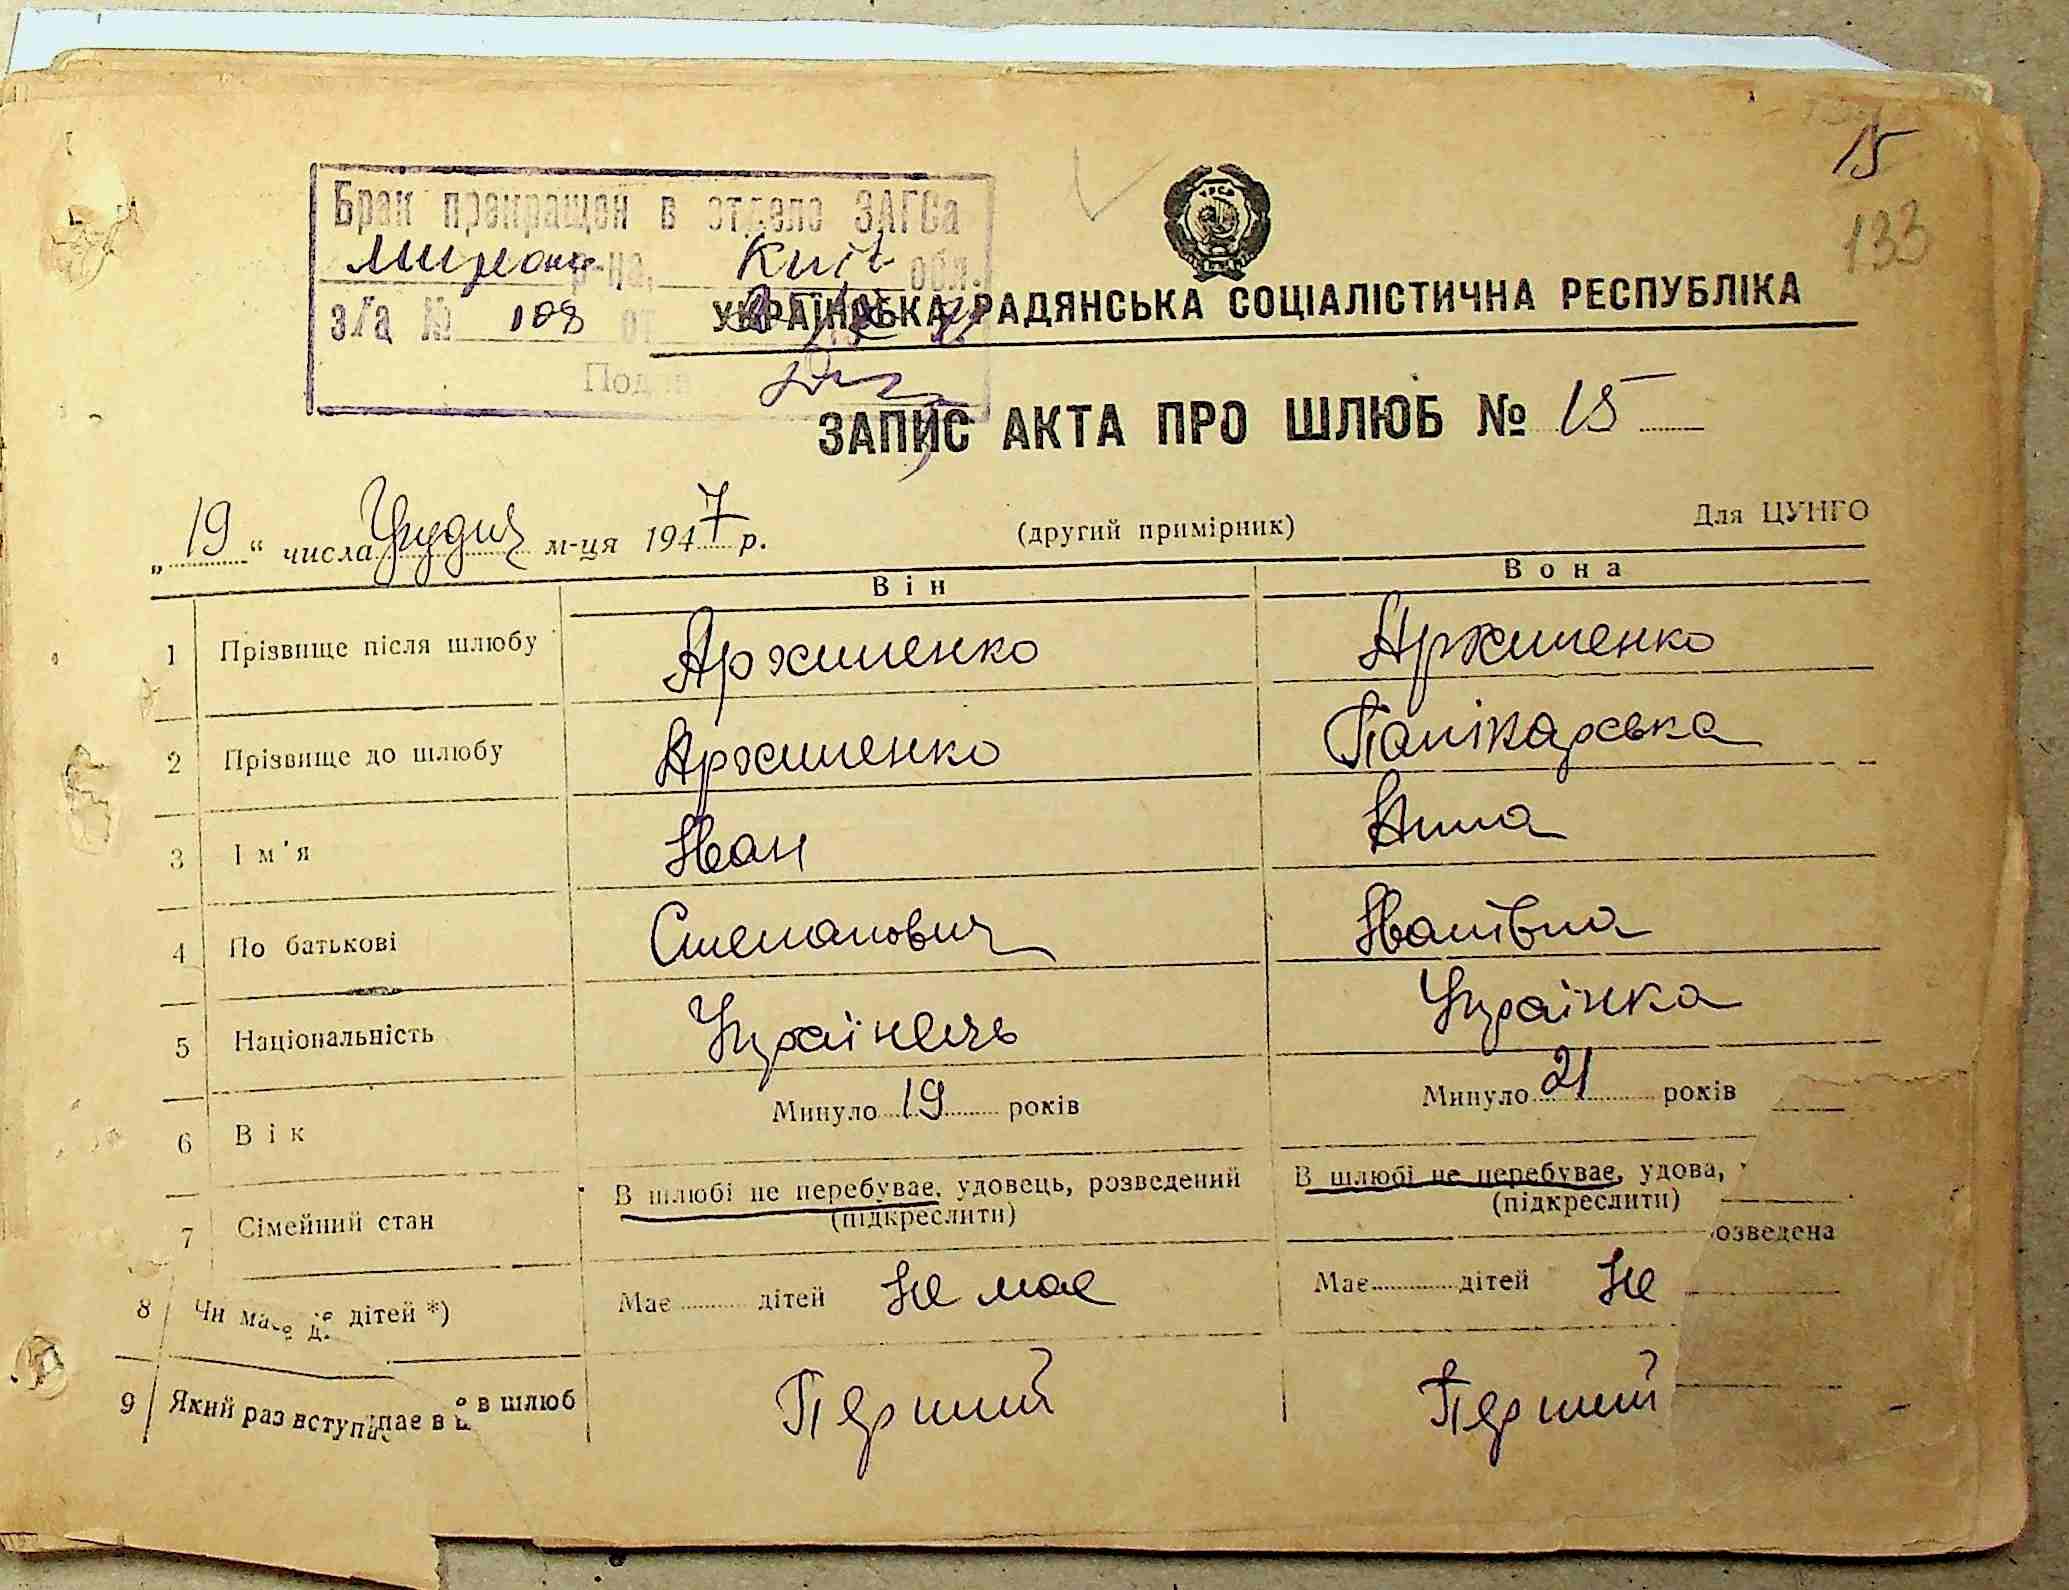 15
133
Брак прекращен в отделе ЗАГСа
р-на, Київ обл.
з/а № 108 от
УКРАЇНСЬКА РАДЯНСЬКА СОЦІАЛІСТИЧНА РЕСПУБЛІКА
ЗАПИС АКТА ПРО ШЛЮБ № 15
„19“ числа Грудня м-ця 1947 р.
(другий примірник)
Для ЦУНГО
Він Вона
1 Прізвище після шлюбу Архипенко Архипенко
2 Прізвище до шлюбу Архипенко Панікарська
3 Ім'я Іван Анна
4 По батькові Степанович Іванівна
5 Національність Українець Українка
6 Вік Минуло 19 років Минуло 21 років
7 Сімейний стан В шлюбі не перебуває, удовець, розведений (підкреслити) В шлюбі не перебуває, удова, (підкреслити) озведена
8 Чи має дітей *) Має дітей Не має Має дітей Не
9 Який раз вступає в шлюб Перший Перший